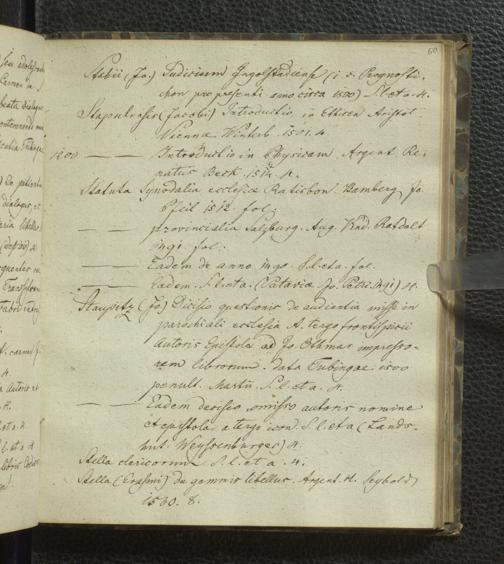 60.
Stabii (Jo.) Judicium Ingolstadiense (i. e. Prognosti-
con pro praesenti anno circa 1500) S. l. et a. 4.
Stapulensis (Jacobi) Introductio in Ethicen Aristot.
Viennae Winterb. 1501. 4.
1200 — — Introductio in Physicam Argent. Re-
natus Beck. 4.
Statuta Synodalia ecclesiae Ratisbon. Bamberg, Jo.
Pfeil 1512. fol.
— — provincialia Salzburg. Aug. Erhd. Ratdolt
1491. fol.
— — Eadem de anno 1490. S. l. et a. fol.
— — Eadem. S. l. et a. (Pataviae Jo. Petri. 1491) 4.
Staupitz (Jo) Decisio questionis de audientia misse in
parochiali ecclesia A tergo frontispicii
Autoris Epistola ad Jo. Othmar impresso-
rem librorum. data Tubingae 1500
penult. Martii. S. l. et a. 4.
— — Eadem decisio, omisso autoris nomine
et epistola a tergo S. l. et a (Lands-
hut. Weyssenburger) 4.
Stella clericorum S. l. et a. 4.
Stella (Erasmi) de gemmis libellus. Argent. H. Seybold
1530. 8.